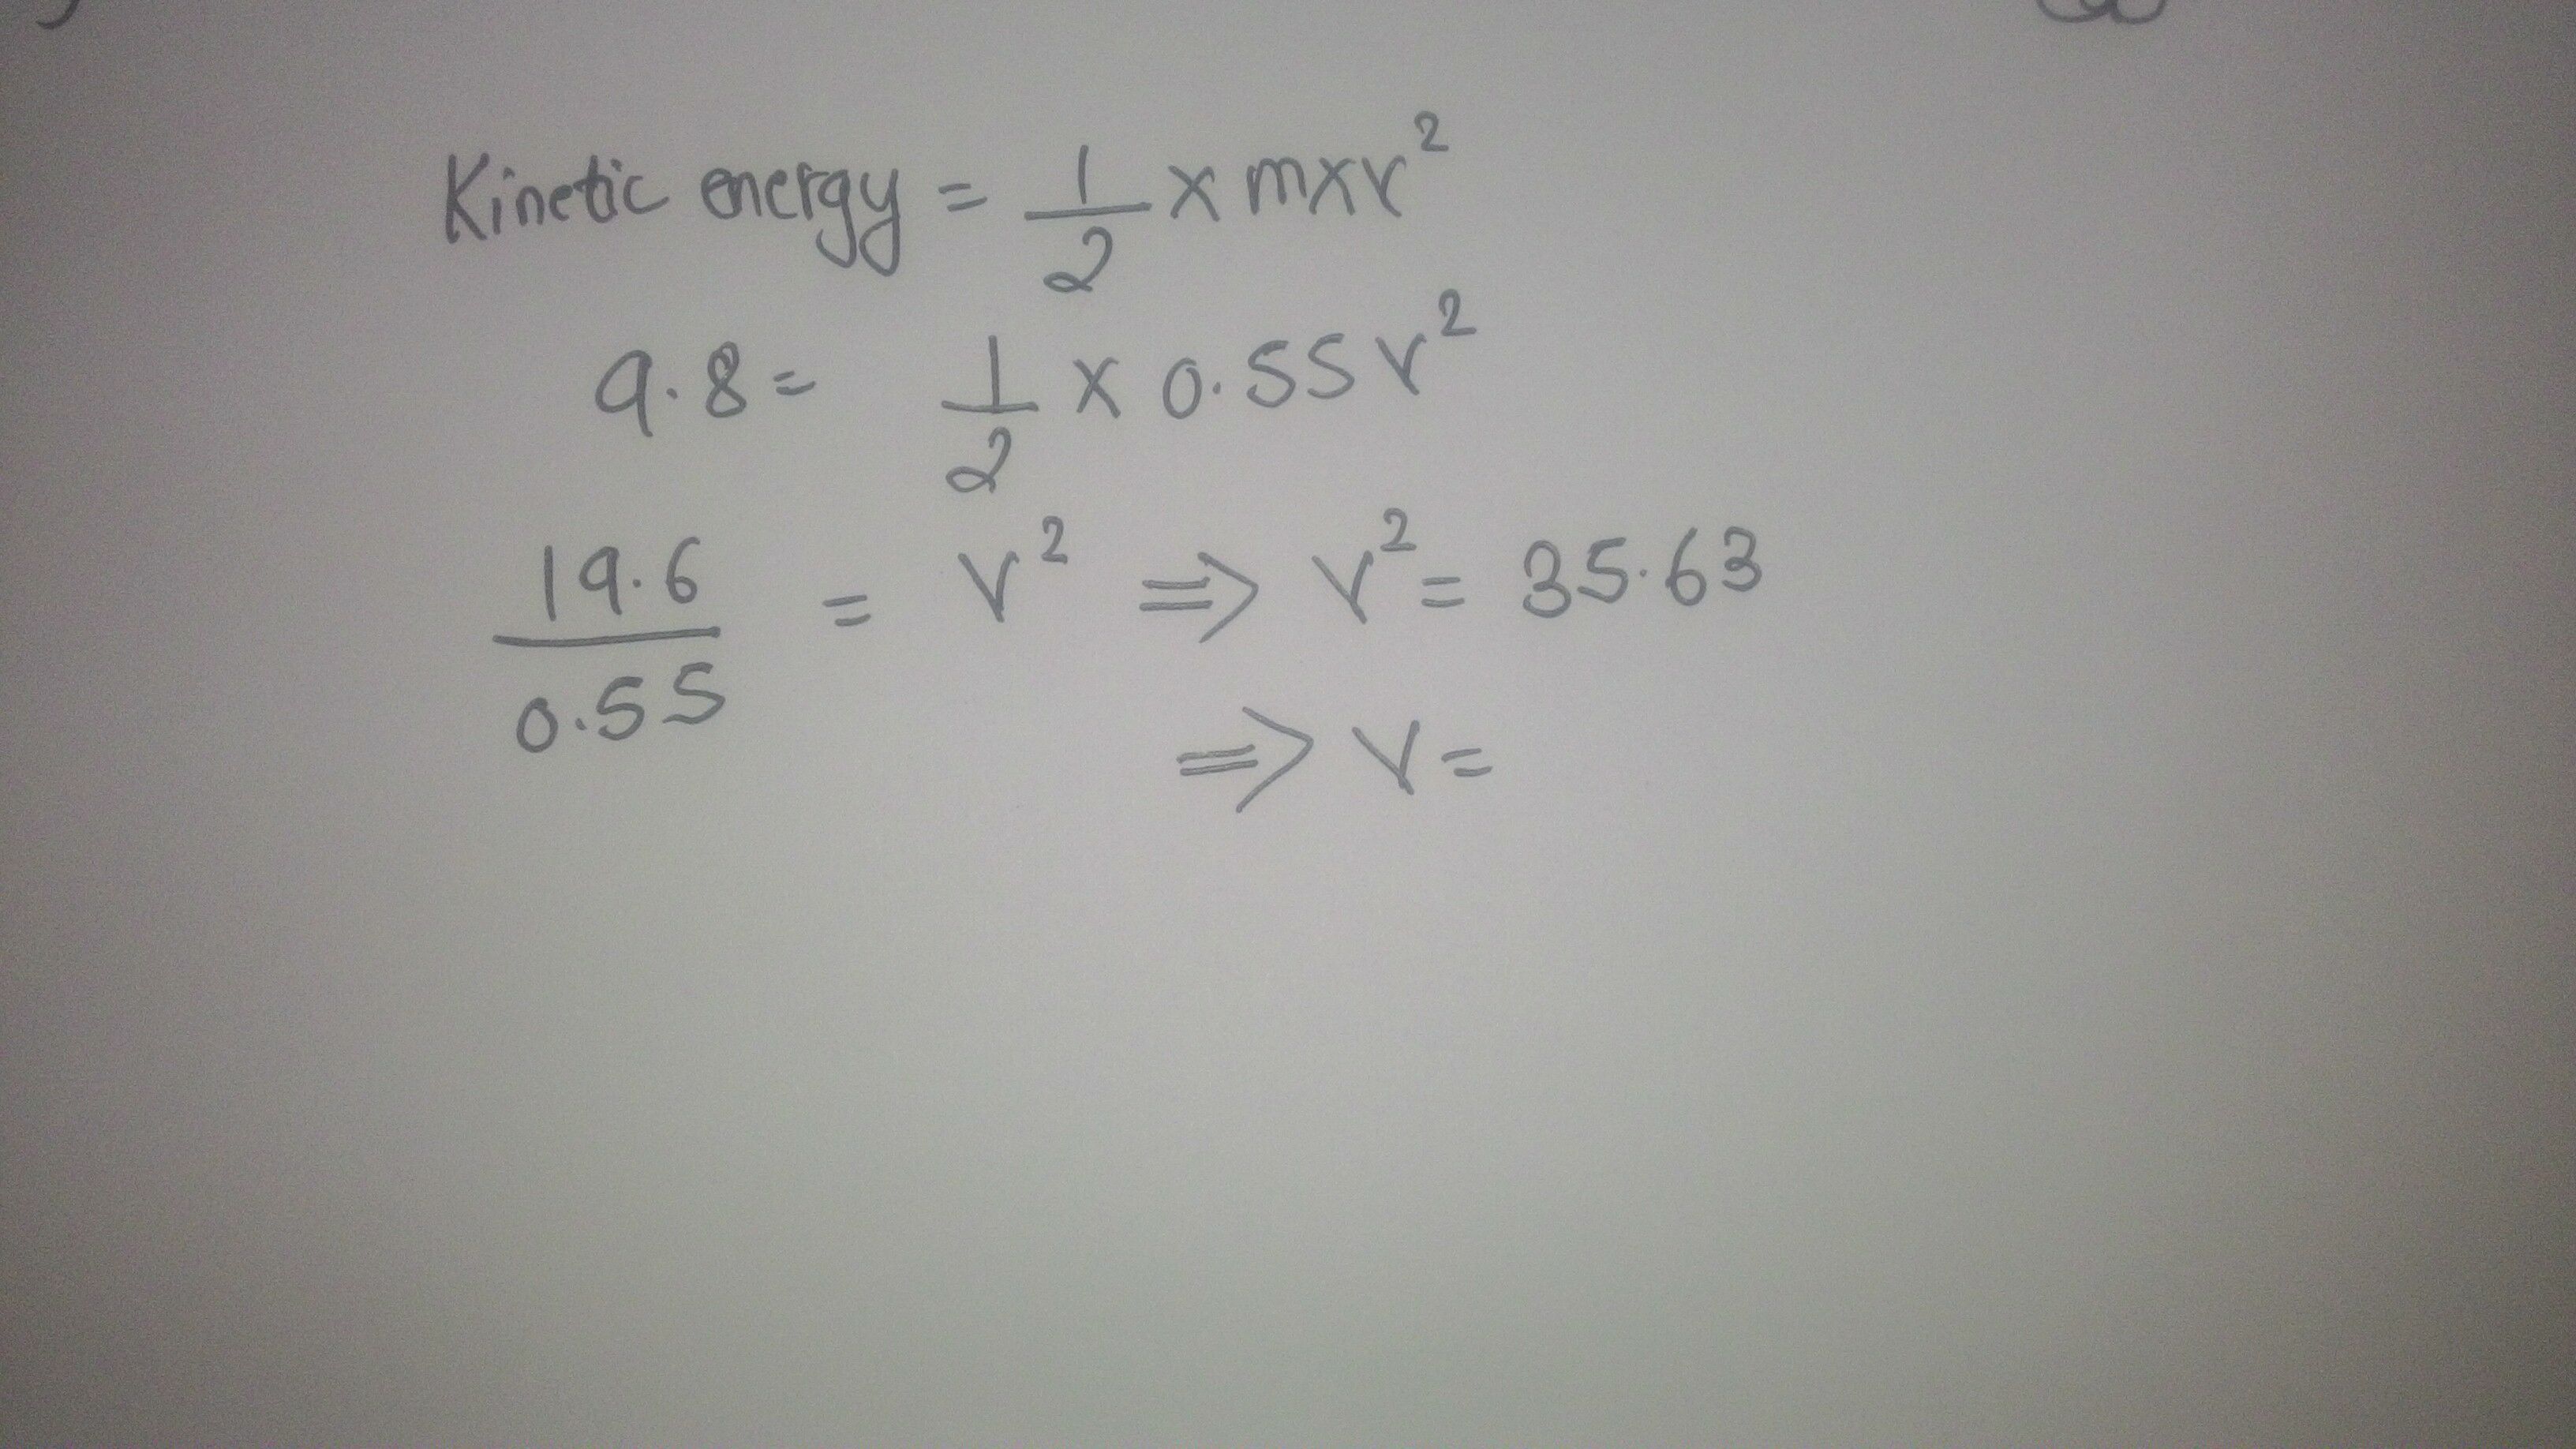 Kinetic energy = 1/2 x mxv²
9.8 = 1/2 x 0.55v²
19.6/0.55 = v² => v² = 35.63
=> v =